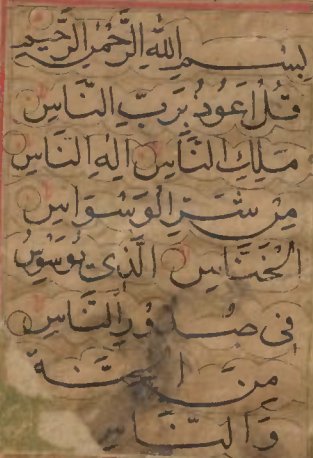 بِسْمِ اللهِ الرَّحْمٰنِ الرَّحِيْمِ
قُلْ اَعُوْذُ بِرَبِّ النَّاسِ
مَلِكِ النَّاسِ اِلٰهِ النَّاسِ
مِنْ شَرِّ الْوَسْوَاسِ
الْخَنَّاسِ الَّذِي يُوَسْوِسُ
فِي صُدُوْرِ النَّاسِ
مِنَ الْجِنَّةِ
وَالنَّاسِ